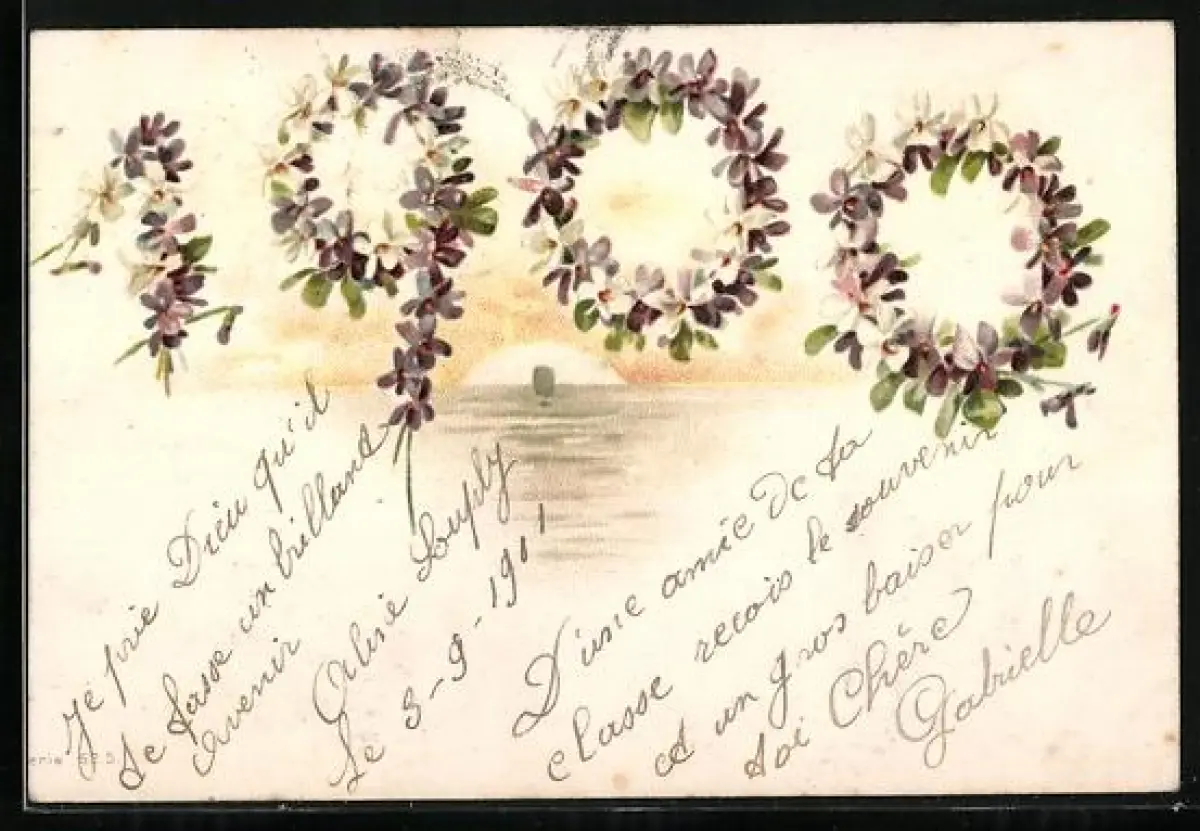 1900
Je prie Dieu qu'il
te fasse un brilland
avenir
Aline
Le 3-9-1901
D'une amie de ta
classe recois le souvenir
et un gros baiser pour
toi Chère
Gabrielle